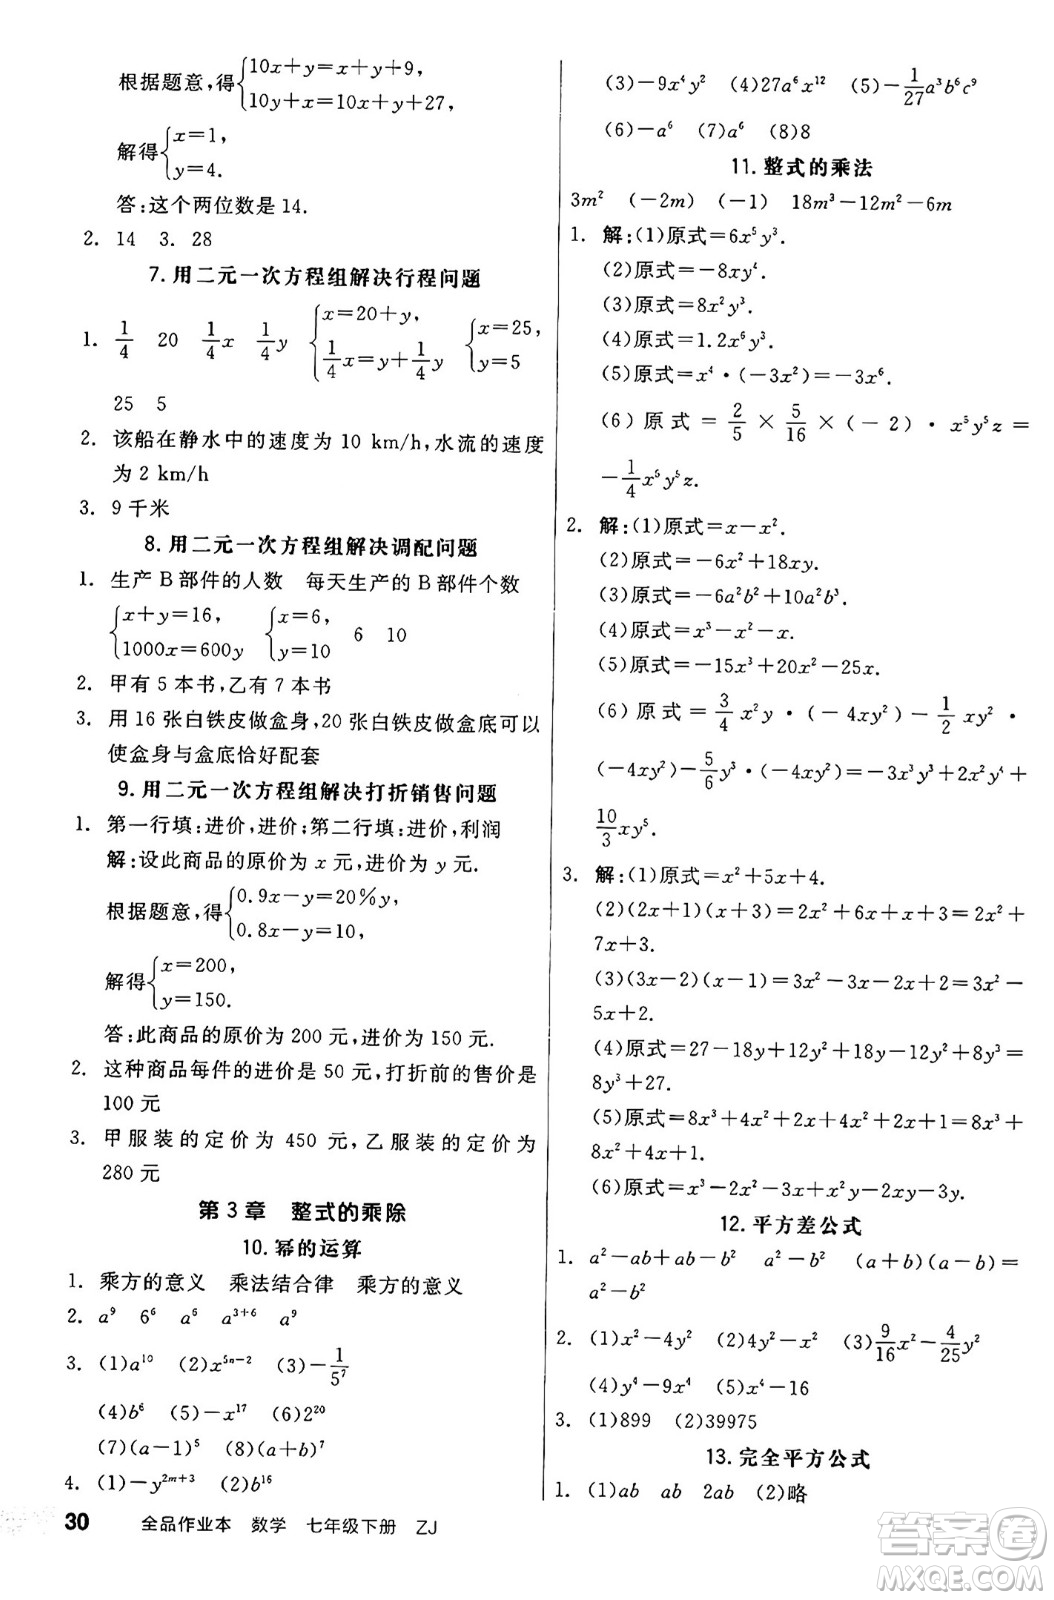 根据题意,得{10x+y=x+y+9,
10y+x=10x+y+27,
解得{x=1,
y=4.
答:这个两位数是14.
2. 14 3. 28
7.用二元一次方程组解决行程问题
1. 1/4 20 1/4x 1/4y {x=20+y, 1/4x=y+1/4y {x=25, y=5
25 5
2. 该船在静水中的速度为 10 km/h,水流的速度
为 2 km/h
3. 9千米
8.用二元一次方程组解决调配问题
1. 生产B部件的人数 每天生产的B部件个数
{x+y=16, 1000x=600y {x=6, y=10 6 10
2. 甲有5本书,乙有7本书
3. 用16张白铁皮做盒身,20张白铁皮做盒底可以
使盒身与盒底恰好配套
9.用二元一次方程组解决打折销售问题
1. 第一行填:进价,进价;第二行填:进价,利润
解:设此商品的原价为x元,进价为y元.
根据题意,得{0.9x-y=20%y,
0.8x-y=10,
解得{x=200,
y=150.
答:此商品的原价为200元,进价为150元.
2. 这种商品每件的进价是50元,打折前的售价是
100元
3. 甲服装的定价为450元,乙服装的定价为
280元
第3章 整式的乘除
10.幂的运算
1. 乘方的意义 乘法结合律 乘方的意义
2. a⁹ 6⁶ a⁶ a³⁺⁶ a⁹
3. (1)a¹⁰ (2)x⁵ⁿ⁻² (3)-1/5⁷
(4)b⁶ (5)-x¹⁷ (6)2²⁰
(7)(a-1)⁵ (8)(a+b)⁷
4. (1)-y²ᵐ⁺³ (2)b¹⁶
(3)-9x⁴y² (4)27a⁶x¹² (5)-1/27a³b⁶c⁹
(6)-a⁶ (7)a⁶ (8)8
11.整式的乘法
3m² (-2m) (-1) 18m³-12m²-6m
1. 解:(1)原式=6x⁵y³.
(2)原式=-8xy⁴.
(3)原式=8x²y³.
(4)原式=1.2x⁶y³.
(5)原式=x⁴·(-3x²)=-3x⁶.
(6)原式=2/5×5/16×(-2)·x⁵y⁵z=
-1/4x⁵y⁵z.
2. 解:(1)原式=x-x².
(2)原式=-6x²+18xy.
(3)原式=-6a²b²+10a²b³.
(4)原式=x³-x²-x.
(5)原式=-15x³+20x²-25x.
(6)原式=3/4x²y·(-4xy²)-1/2xy²·
(-4xy²)-5/6y³·(-4xy²)=-3x³y³+2x²y⁴+
10/3xy⁵.
3. 解:(1)原式=x²+5x+4.
(2)(2x+1)(x+3)=2x²+6x+x+3=2x²+
7x+3.
(3)(3x-2)(x-1)=3x²-3x-2x+2=3x²-
5x+2.
(4)原式=27-18y+12y²+18y-12y²+8y³=
8y³+27.
(5)原式=8x³+4x²+2x+4x²+2x+1=
8x³+8x²+4x+1.
(6)原式=x³-x²-2xy+2xy-3y=x³-x²-3y.
12.平方差公式
1. a²-ab+ab-b² a²-b² (a+b)(a-b)=
a²-b²
2. (1)x²-4y² (2)4y²-x² (3)9/16x²-4/25y²
(4)y⁴-9x⁴ (5)x⁴-16
3. (1)899 (2)39975
13.完全平方公式
1. (1)ab ab (2)略
30 全品作业本 数学 七年级下册 ZJ
答案圈
MXQE.COM